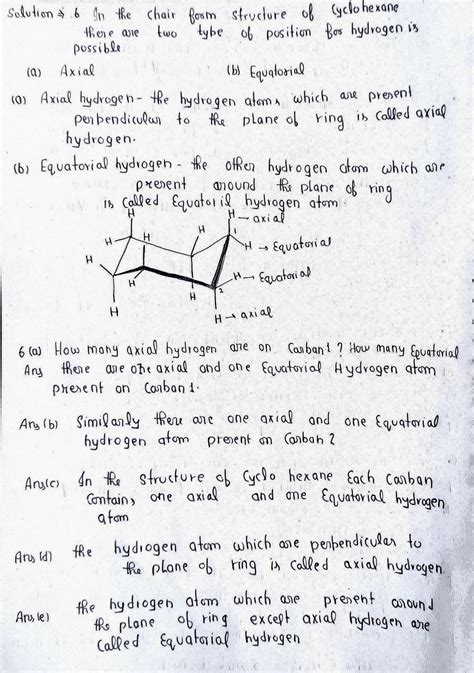 Solution ⇒ 6 In the chair form structure of Cyclohexane
there are two type of position for hydrogen is
possible
(a) Axial (b) Equatorial
(a) Axial hydrogen - the hydrogen atoms which are present
perpendicular to the plane of ring is called axial
hydrogen.
(b) Equatorial hydrogen - the other hydrogen atom which are
present around the plane of ring
is called Equatorial hydrogen atom
H H - axial
H H H 1 H → Equatorial
H H → Equatorial
H H 2
H H → axial
6(a) How many axial hydrogen are on Carban 1? How many Equatorial
Ans there are one axial and one Equatorial Hydrogen atom
present on Carban 1.
Ans (b) Similarly there are one axial and one Equatorial
hydrogen atom present on Carban 2
Ans(c) In the structure of Cyclo hexane Each Carban
Contain, one axial and one Equatorial hydrogen
atom
Ans (d) the hydrogen atom which are perpendicular to
the plane of ring is called axial hydrogen.
Ans(e) the hydrogen atom which are present around
the plane of ring except axial hydrogen are
called Equatorial hydrogen